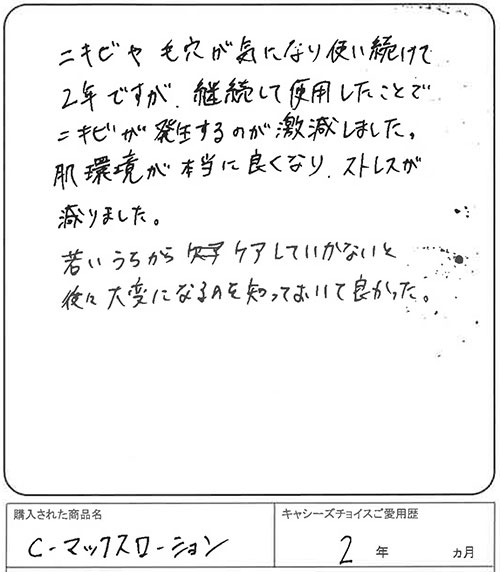 ニキビや毛穴が気になり使い続けて
2年ですが、継続して使用したことで
ニキビが発生するのが激減しました。
肌環境が本当に良くなり、ストレスが
減りました。
若いうちから ケアしていかないと
後々大変になるのを知っておいて良かった。
購入された商品名
キャシーズチョイスご愛用歴
C-マックスローション
2 年 ヵ月